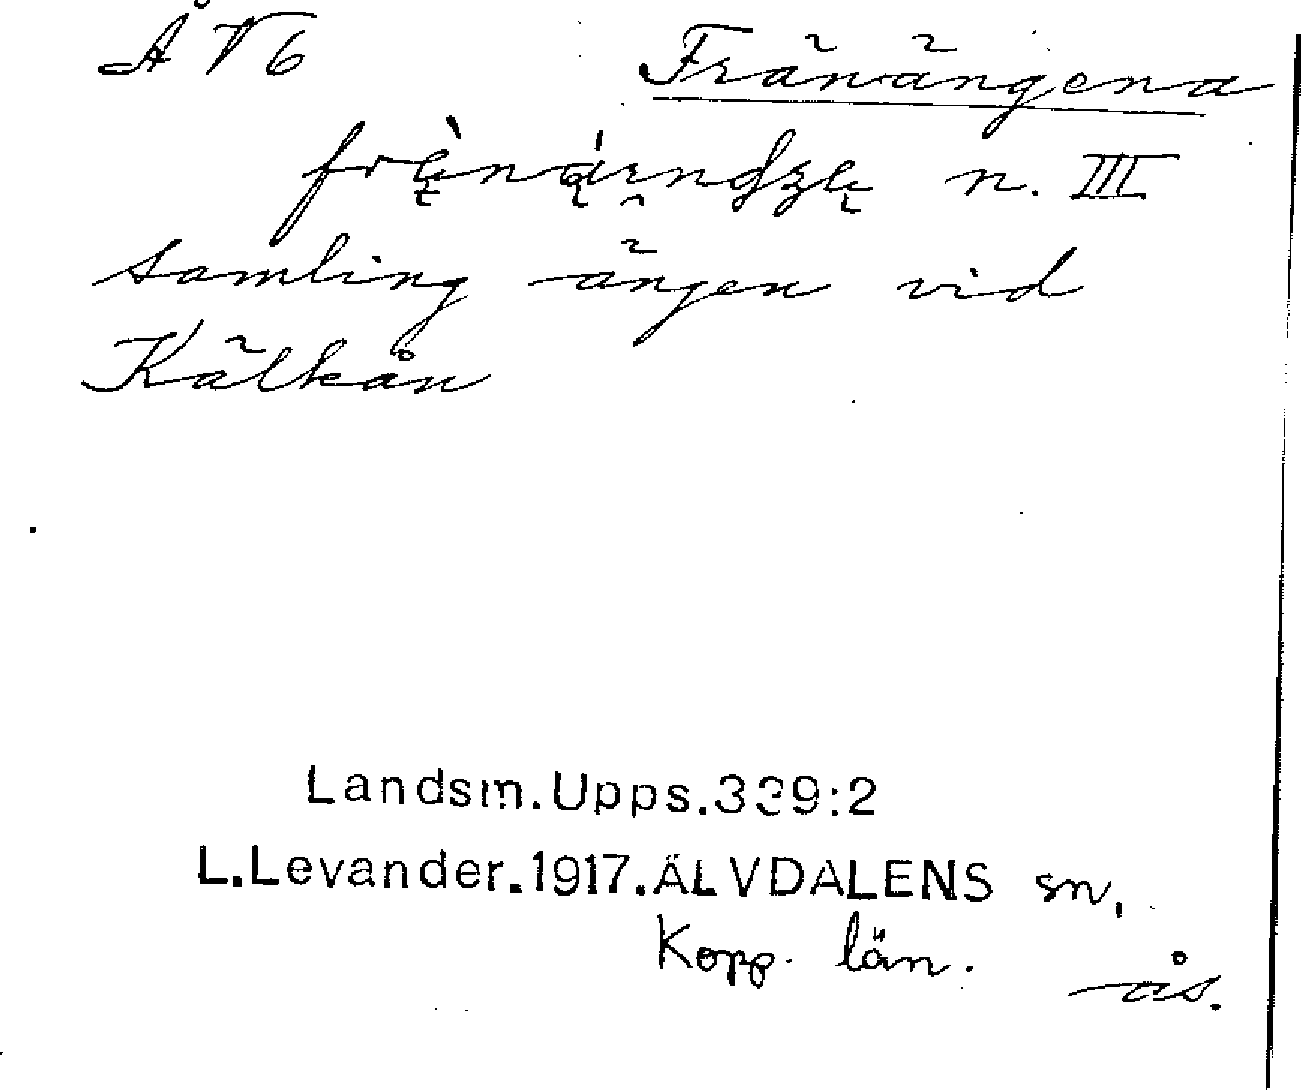 ÅV6 Fränängena
n. III
samling ängen vid
Kälkån
Landsm.Upps.339:2
L.Levander.1917.ÄLVDALENS sn.
Kopp. län. ås.